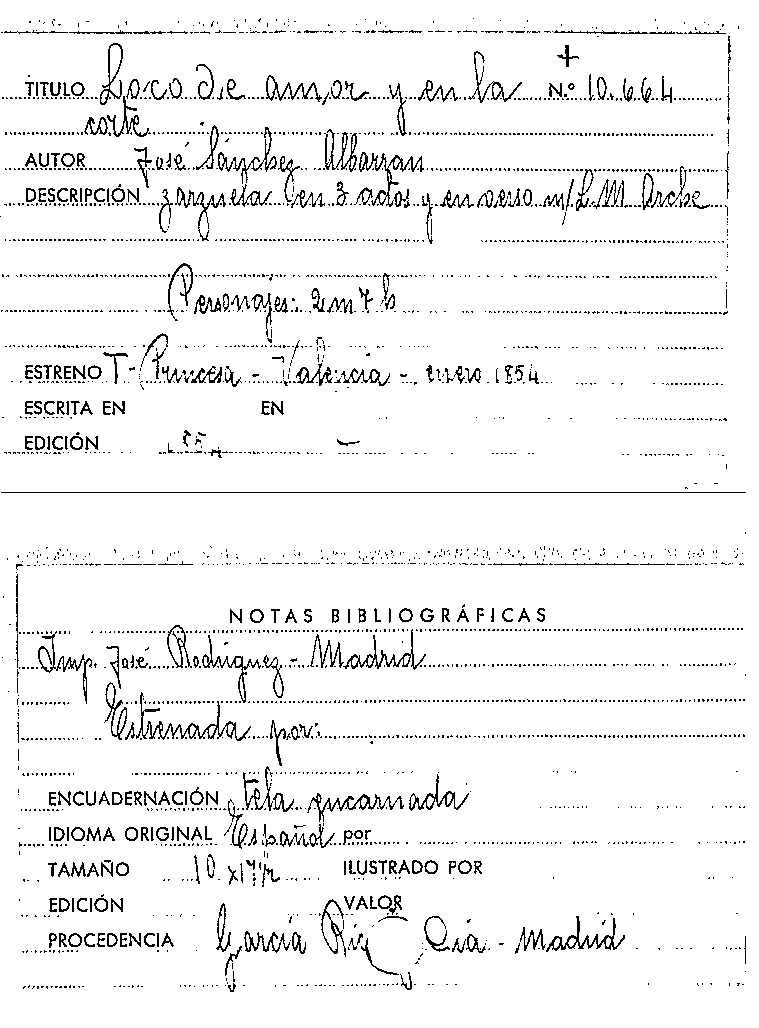 +
TITULO Loco de amor y en la N.º 10.664
corte
AUTOR José Sánchez Albarran
DESCRIPCIÓN zarzuela en 3 actos y en verso m/ L.M. Arche
Personajes: 2 m 7 h
ESTRENO T- Princesa - Valencia - enero 1854
ESCRITA EN EN
EDICIÓN —
NOTAS BIBLIOGRÁFICAS
Imp. José Rodriguez - Madrid
Estrenada por:
ENCUADERNACIÓN tela encarnada
IDIOMA ORIGINAL Español por
TAMAÑO 10 x ILUSTRADO POR
EDICIÓN VALOR
PROCEDENCIA García Cia - Madrid